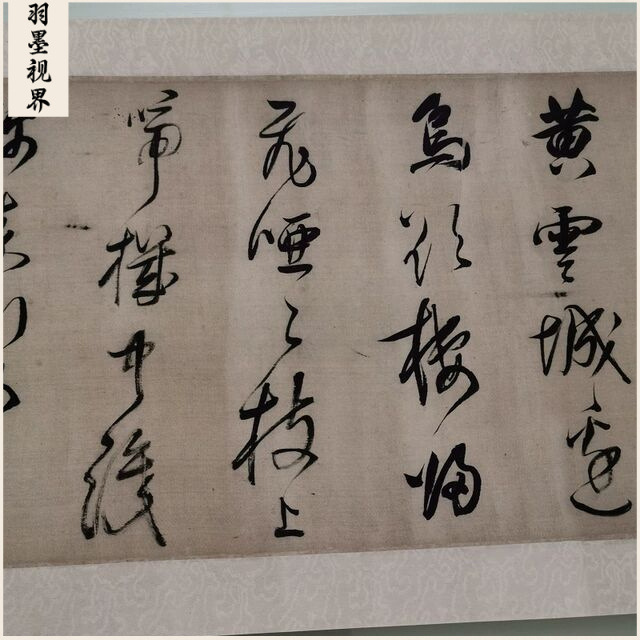 羽墨视界
黄雲城邊
烏欲棲歸
飛啞々枝上
啼機中織